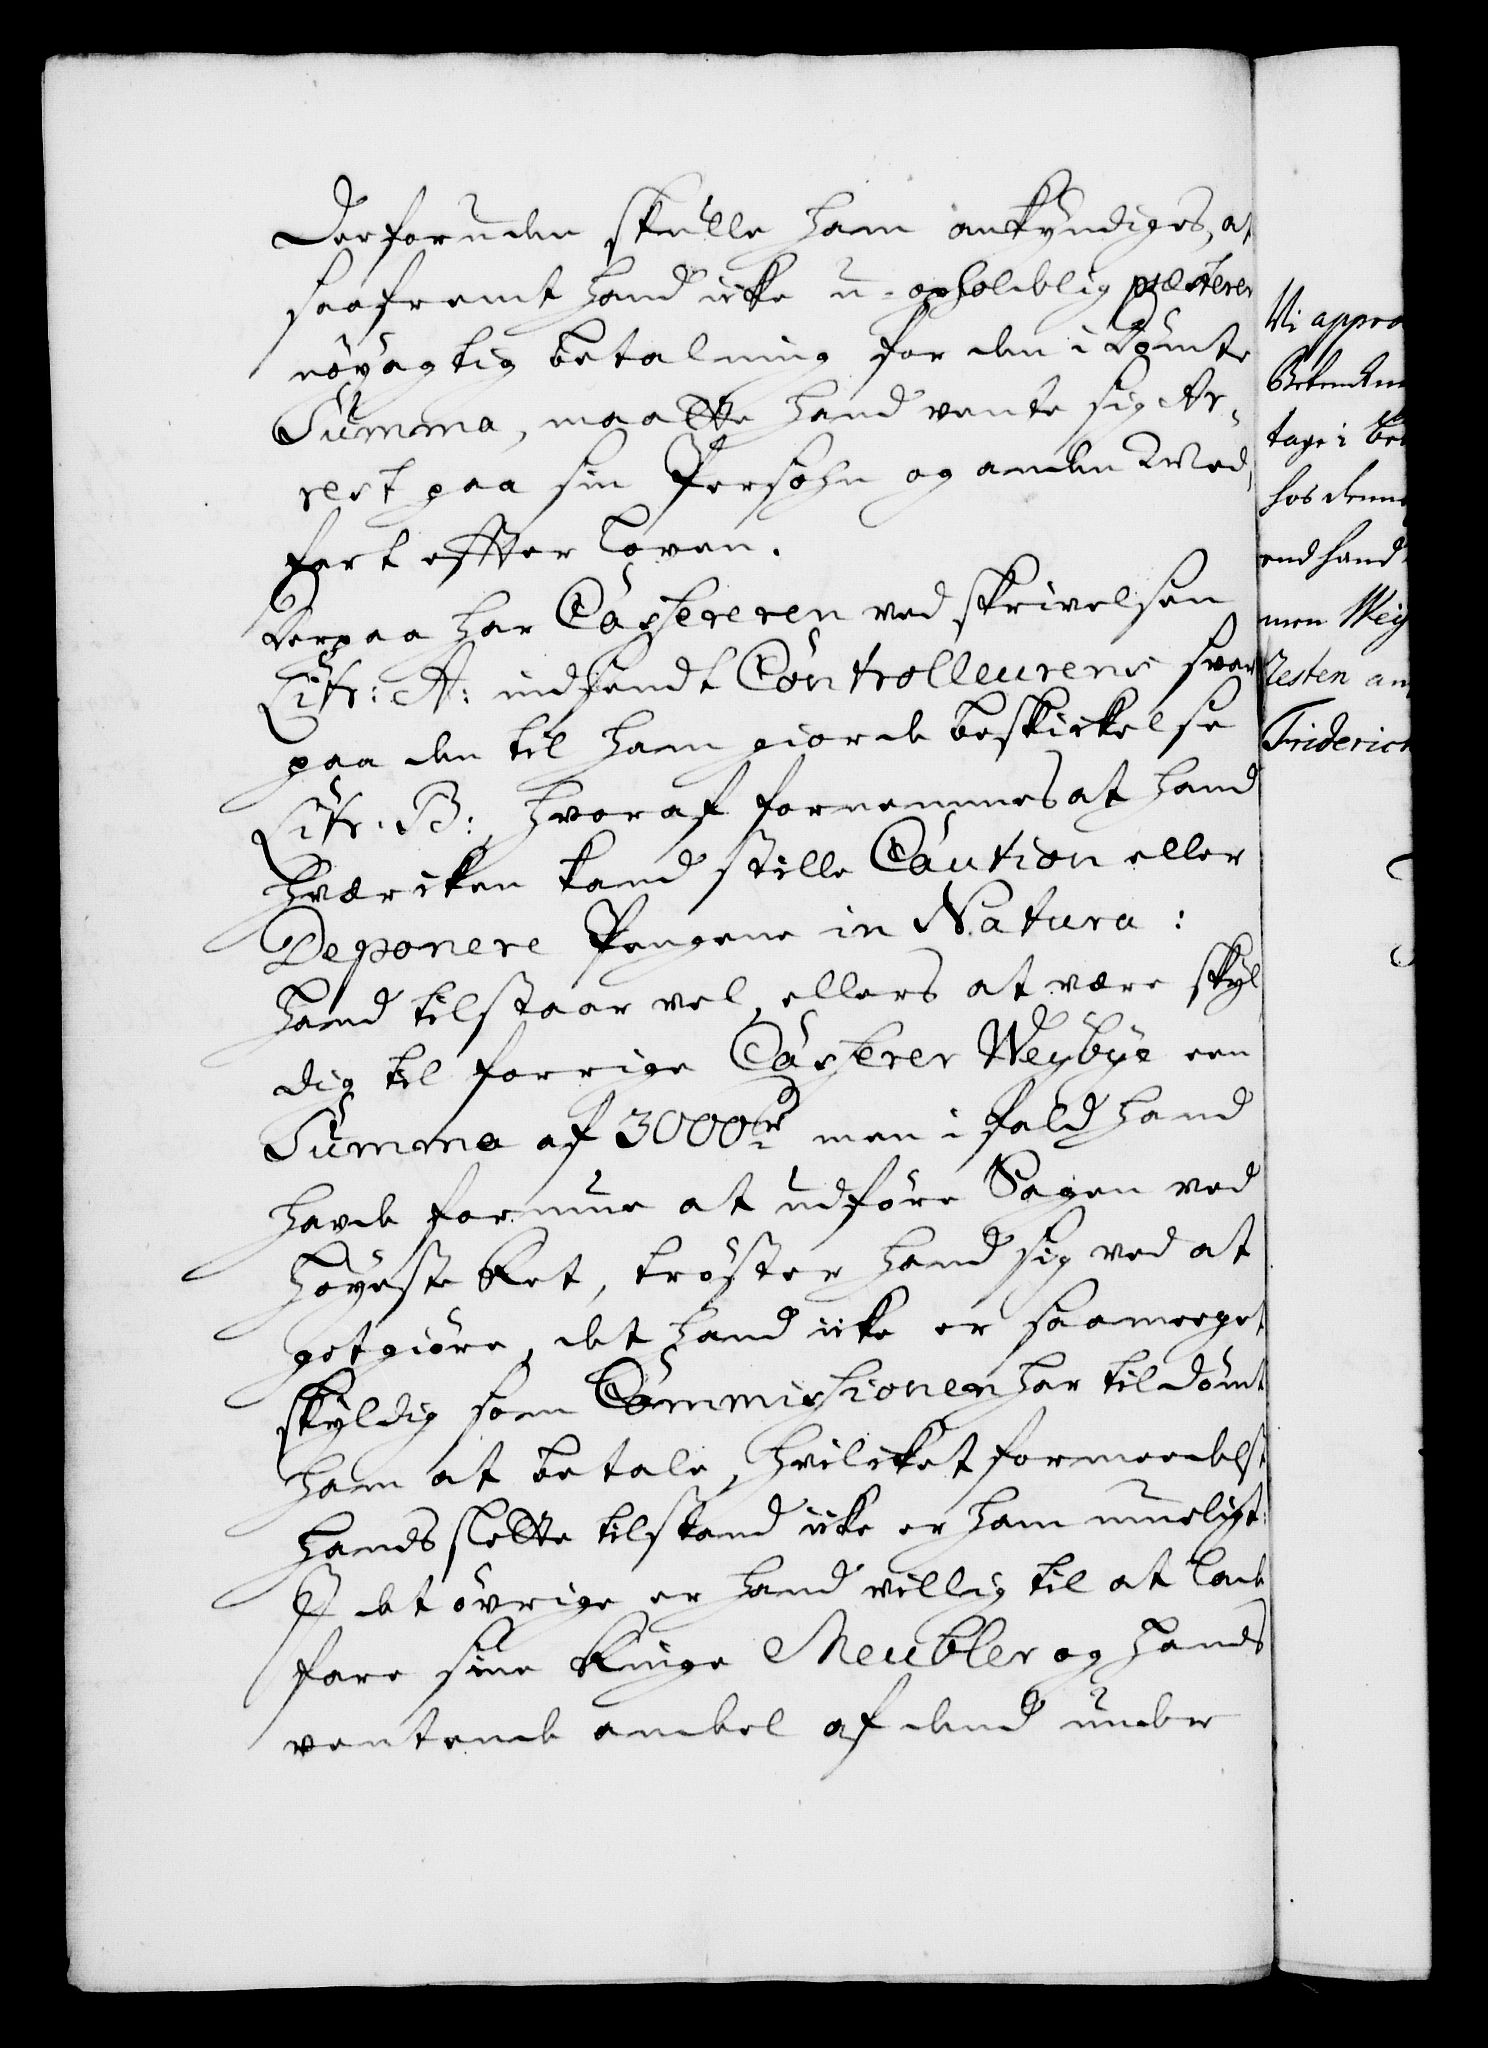 Derforuden skulle ham ankyndiges, at
saafremt hand icke u-opholdelig præsterer
nöyagtig betalning for den i dömte
Summa, maatte hand vente sig Ar-
rest paa sin Persohn og anden Med-
fart effter Loven.
Derpaa har Cassereren ved skrivelsen
Litr: A: indsendt Controlleurens svar
paa den til ham giorde beskickelse
Litr. B: hvoraf fornemmes at hand
hværcken kand stille Caution eller
Deponere Pengene in Natura:
hand tilstaar vel, ellers at være skyl
dig til forrige Casserer Weybye een
Summa af 3000 rd men i fald hand
havde formue at udföre Sagen ved
höyeste Ret, tröster hand sig ved at
gotgiöre, det hand icke er saameeget
skyldig som Commissionen har tildömt
ham at betale, hvilcket formeedelst
hands slette tilstand icke er ham mueligt:
I det övrige er hand villig til at lade
fare sine Ringe Meubler og hands
ventende andeel af dend under
Vi appro
tage i bet
hos denne
end hand
men Wey
resten an
Friderich